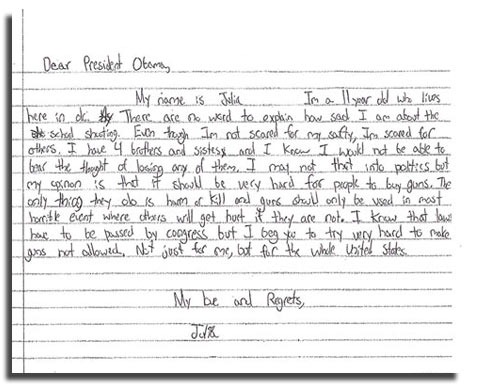 Dear President Obama,
My name is Julia Im a 11 year old who lives
here in dc. There are no word to explain how sad I am about the
school shooting. Even though Im not scared for my safty, Im scared for
others. I have 4 brothers and sisters and I know I would not be able to
bear the thought of losing any of them. I may not that into politics but
my opinon is that it should be very hard for people to buy guns. The
only thing they do is harm or kill and guns should only be used in most
horrible event where others will get hurt if they are not. I know that laws
have to be passed by congress but I beg you to try very hard to make
guns not allowed. Not just for me, but for the whole United States.
My be and Regrets,
Julia